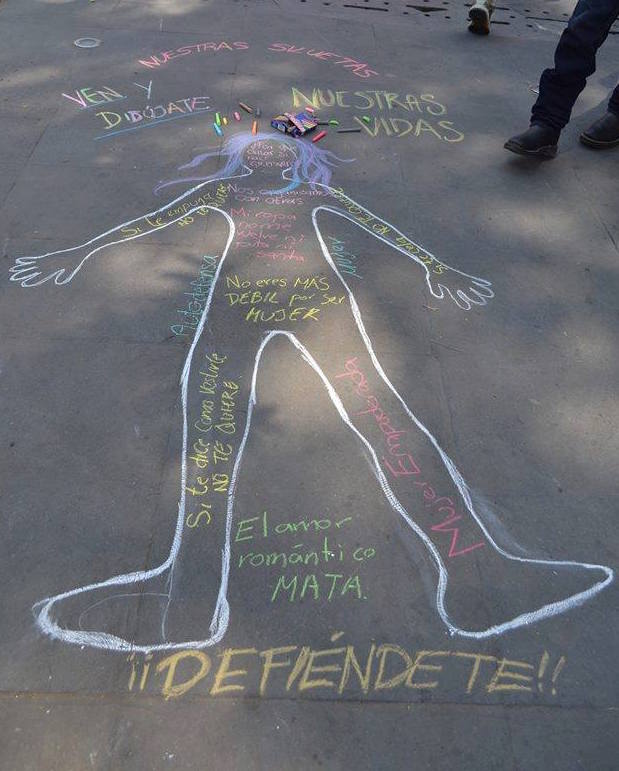 NUESTRAS SILUETAS
VEN Y
DIBÚJATE
NUESTRAS
VIDAS
Nos
con otras
Mi copa
menstrual
Si te
NO TE
Si te cela
NO TE QUIERE
Autodefensa
Mujer
No eres MÁS
DÉBIL por ser
MUJER
Si te dice como vestirte
NO TE QUIERE
Mujer Empoderada
El amor
romántico
MATA.
¡¡DEFIÉNDETE!!